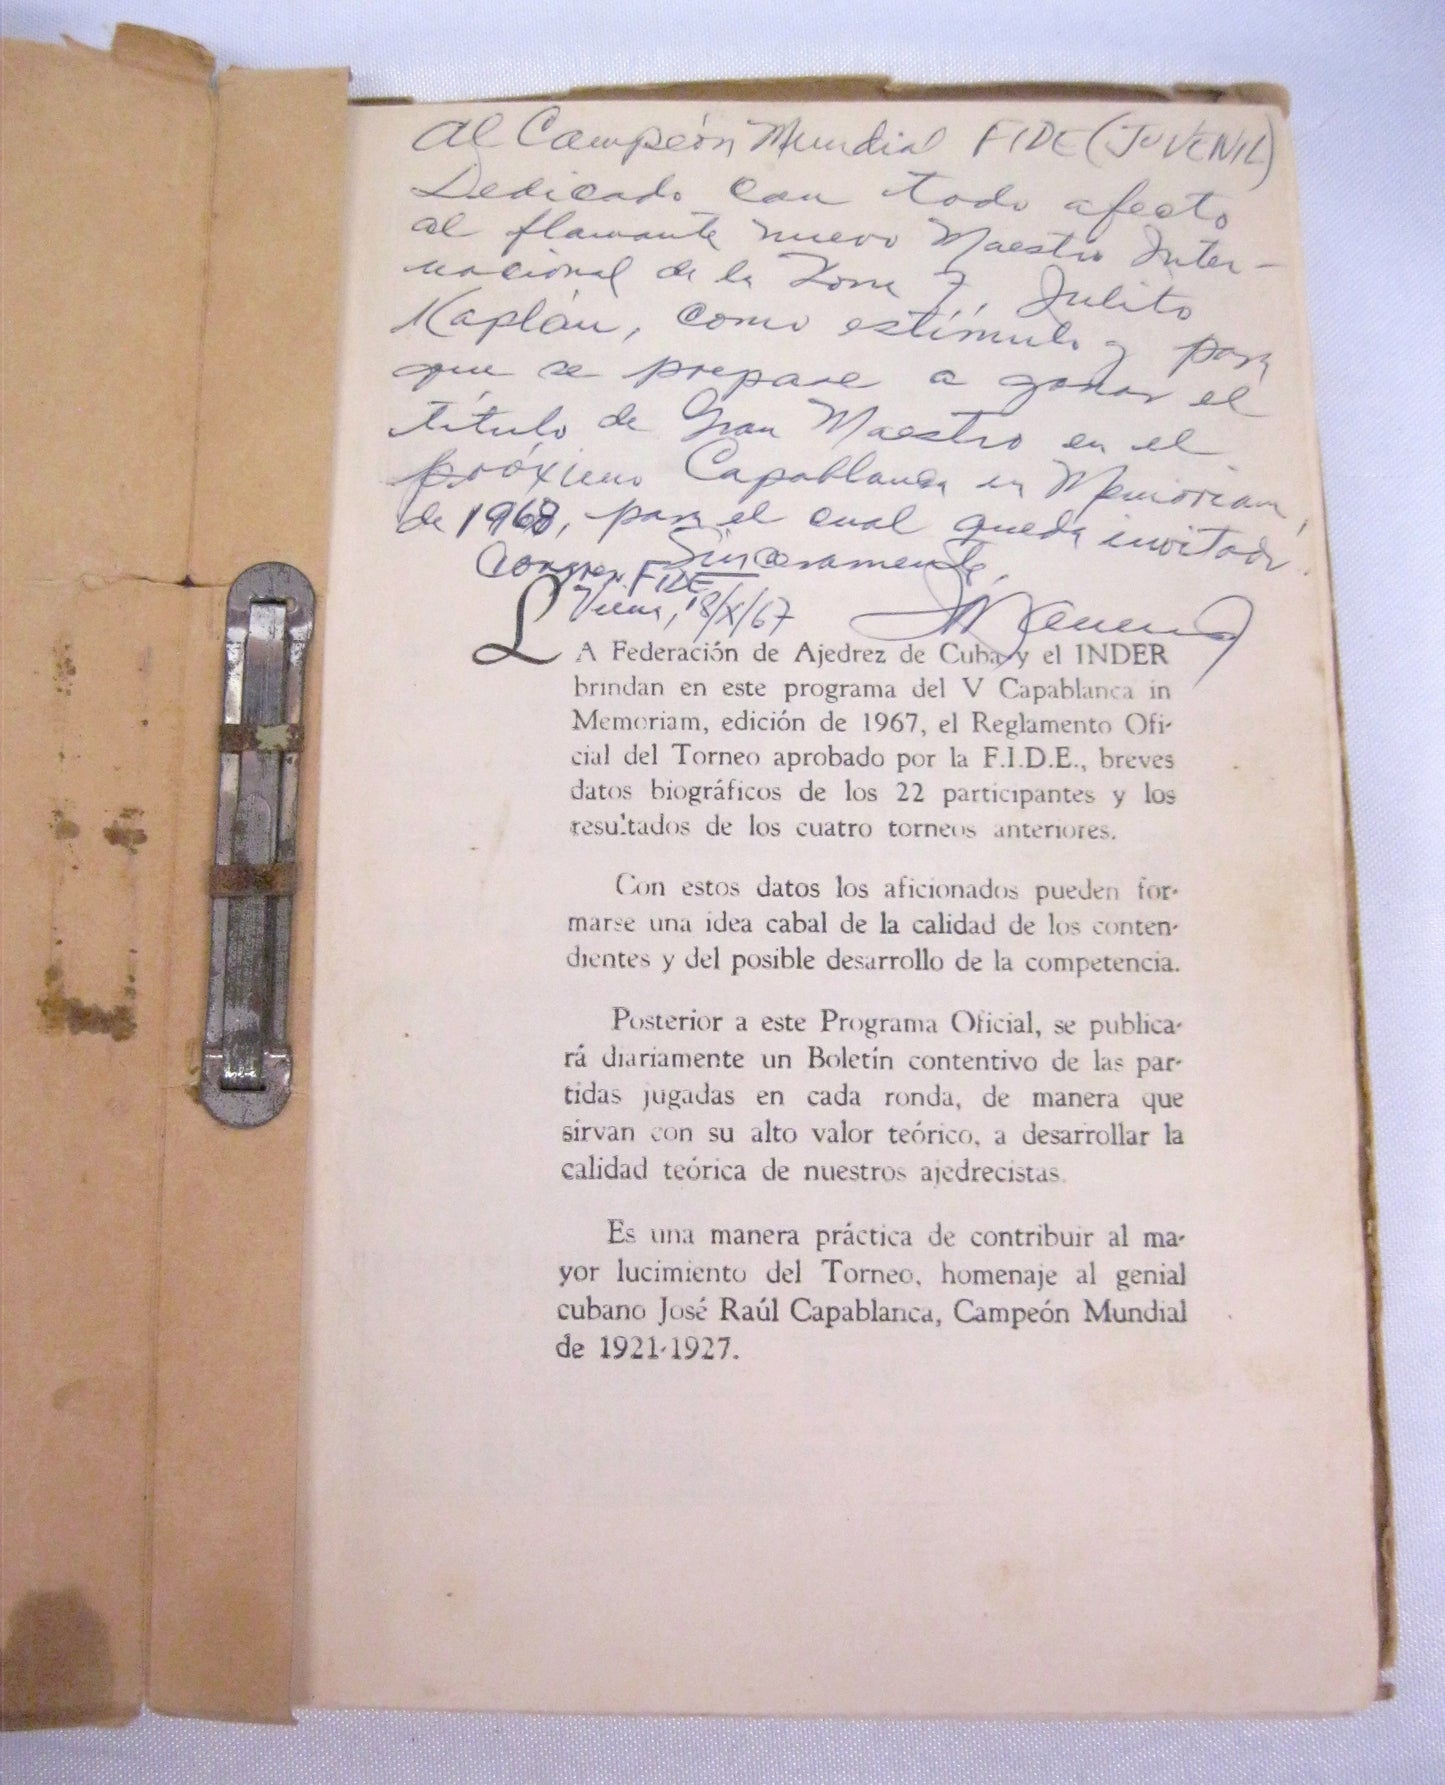 Al Campeón Mundial FIDE (JUVENIL)
Dedicado con todo afecto
al flamante nuevo Maestro Inter-
nacional de la Zona 7, Julito
Kaplán, como estímulo y para
que se prepare a ganar el
título de Gran Maestro en el
próximo Capablanca in Memoriam,
de 1968, para el cual queda invitado.
Sinceramente,
Congreso FIDE
Viena, 18/X/67
LA Federación de Ajedrez de Cuba y el INDER
brindan en este programa del V Capablanca in
Memoriam, edición de 1967, el Reglamento Ofi-
cial del Torneo aprobado por la F.I.D.E., breves
datos biográficos de los 22 participantes y los
resultados de los cuatro torneos anteriores.
Con estos datos los aficionados pueden for-
marse una idea cabal de la calidad de los conten-
dientes y del posible desarrollo de la competencia.
Posterior a este Programa Oficial, se publica-
rá diariamente un Boletín contentivo de las par-
tidas jugadas en cada ronda, de manera que
sirvan con su alto valor teórico, a desarrollar la
calidad teórica de nuestros ajedrecistas.
Es una manera práctica de contribuir al ma-
yor lucimiento del Torneo, homenaje al genial
cubano José Raúl Capablanca, Campeón Mundial
de 1921-1927.